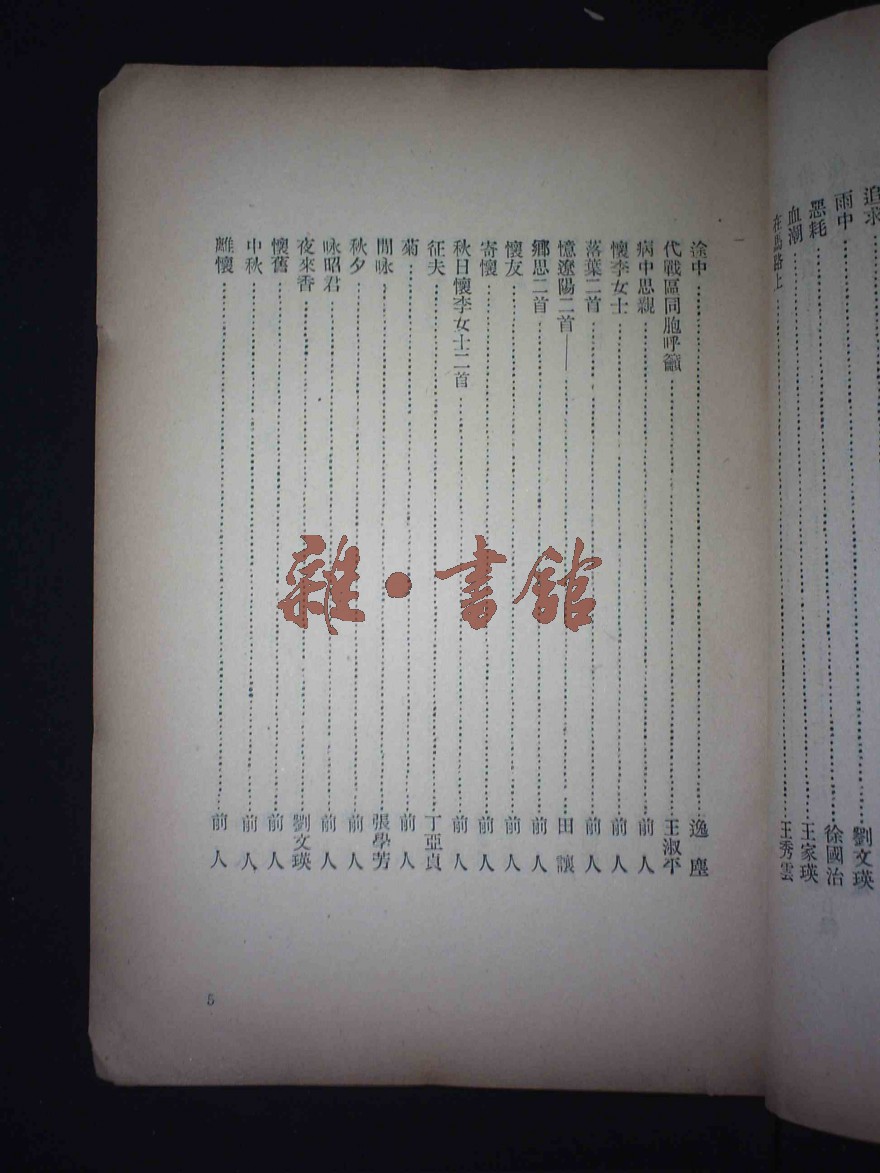 追求……劉文瑛
雨中……徐國治
惡耗……王家瑛
血潮……王秀雲
在馬路上
途中……逸塵
代戰區同胞呼籲……王淑平
病中思親……前人
懷李女士……前人
落葉二首……前人
憶遼陽二首……田讓
鄉思二首……前人
懷友……前人
寄懷……前人
秋日懷李女士二首……前人
征夫……丁亞貞
菊……前人
閒咏……張學芳
秋夕……前人
咏昭君……前人
夜來香……劉文瑛
懷舊……前人
中秋……前人
離懷……前人
5
雜·書館